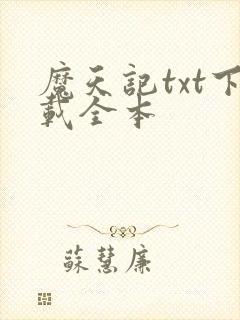 魔天記txt下
載全本
蘇慧廉